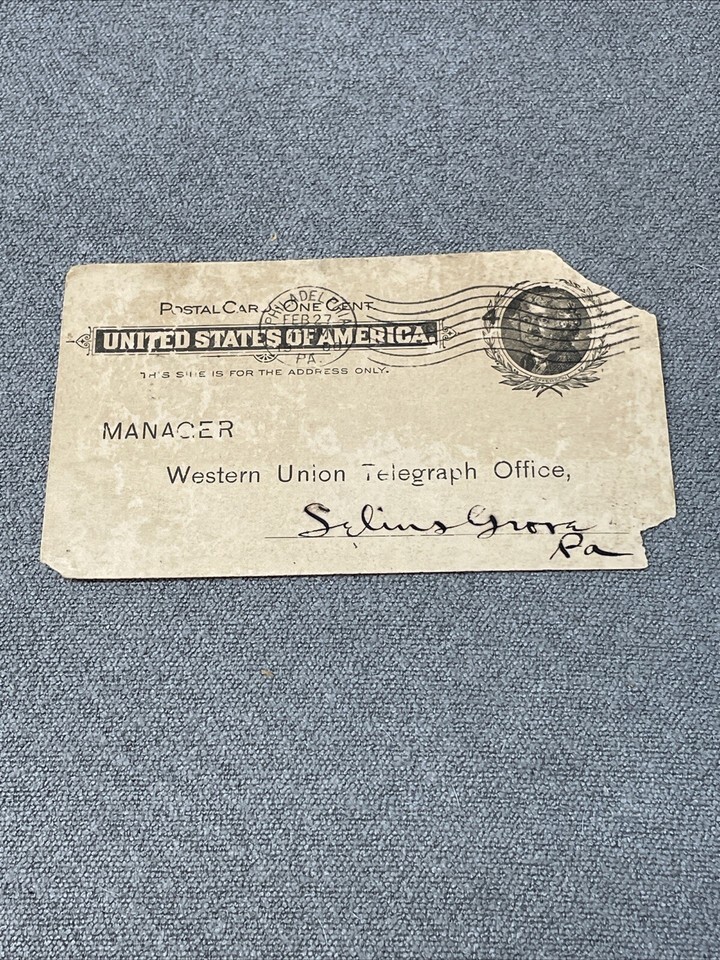 POSTAL CARD ONE CENT
UNITED STATES OF AMERICA.
THIS SIDE IS FOR THE ADDRESS ONLY.
PHILADELPHIA
FEB 27
PA.
MANAGER
Western Union Telegraph Office,
Selins Grove
Pa